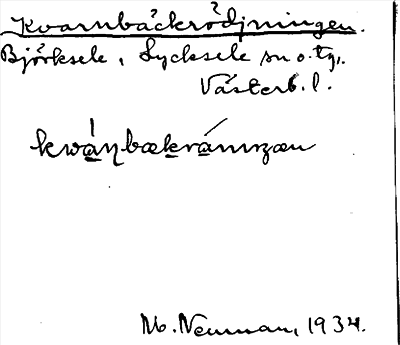 Kvarnbäckrödjningen.
Björksele, Lycksele sn o. tg,
Västerb. l.
kwáɳbækrámɩzæn
M. Neuman, 1934.